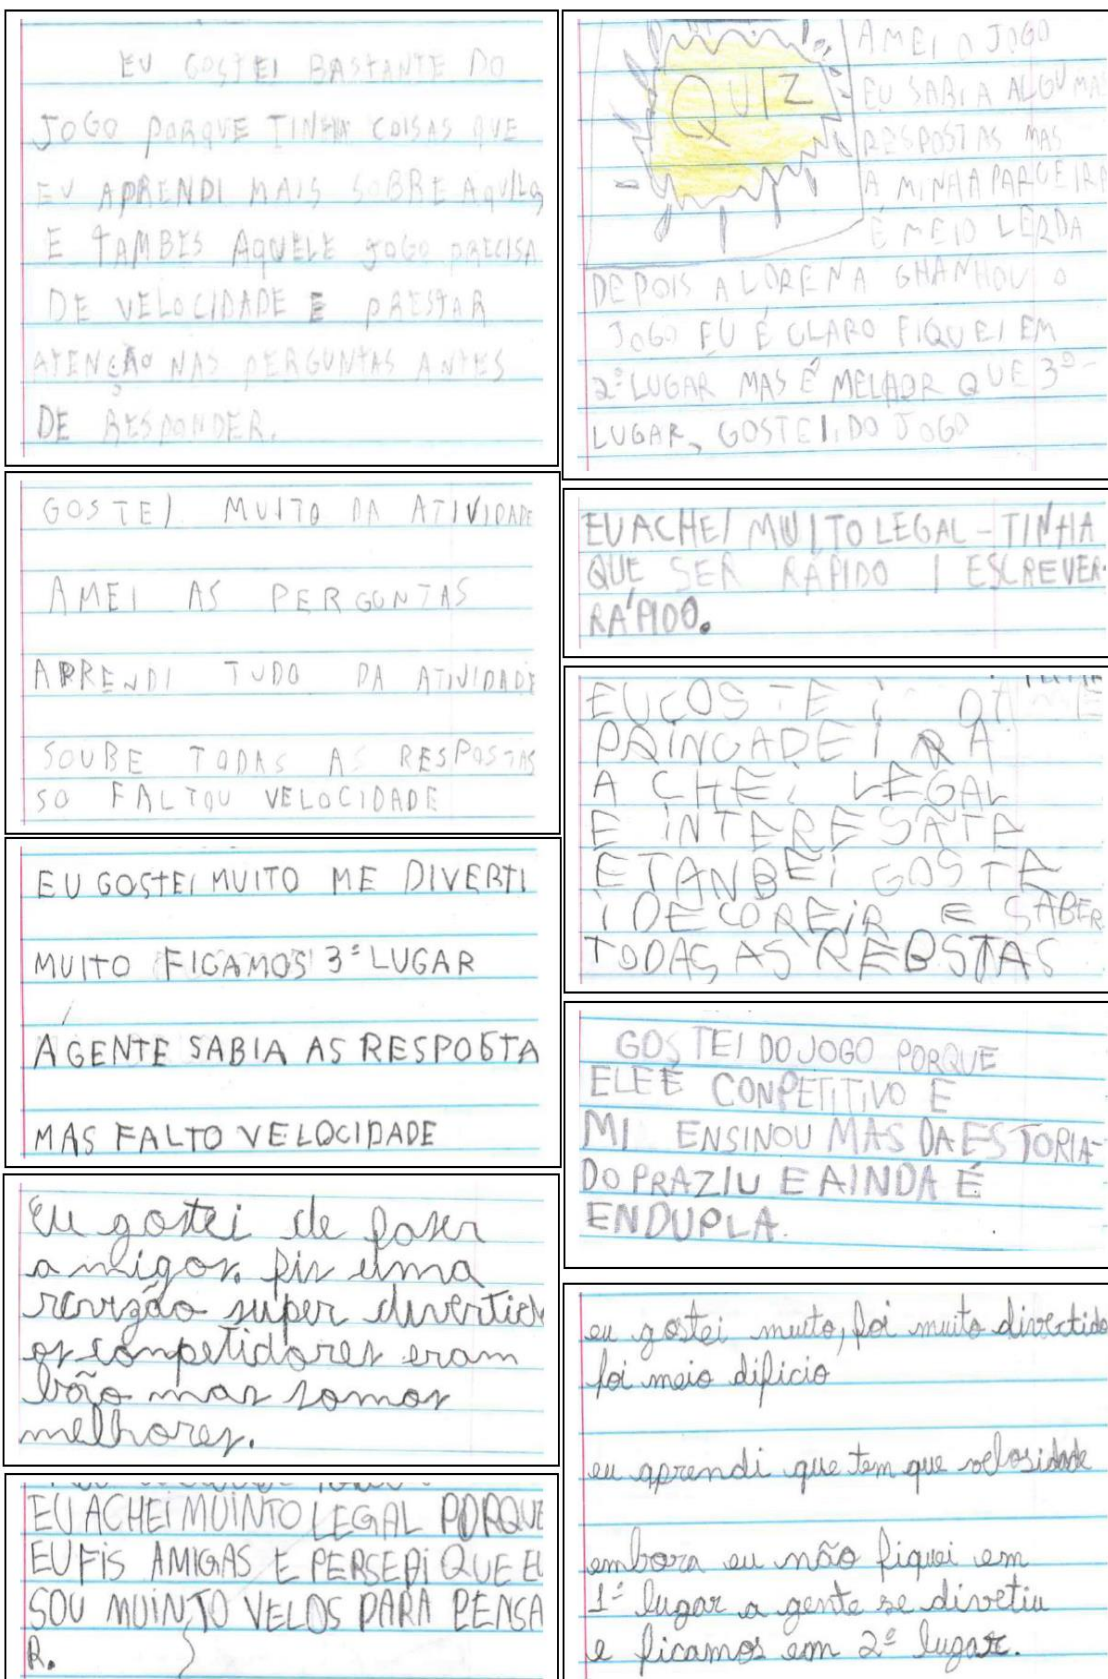 EU GOSTEI BASTANTE DO
JOGO PORQUE TINHA COISAS QUE
EU APRENDI MAIS SOBRE AQUILO
E TAMBES AQUELE JOGO PRECISA
DE VELOCIDADE E PRESTAR
ATENÇÃO NAS PERGUNTAS ANTES
DE RESPONDER.
GOSTEI MUITO DA ATIVIDADE
AMEI AS PERGUNTAS
APRENDI TUDO DA ATIVIDADE
SOUBE TODAS AS RESPOSTAS
SO FALTOU VELOCIDADE
EU GOSTEI MUITO ME DIVERTI
MUITO FIGAMOS 3º LUGAR
AGENTE SABIA AS RESPOSTA
MAS FALTO VELOCIDADE
Eu gostei de faser
amigos. fis uma
revizão super divertid
os conpetidores eram
bão mas somos
melhores.
EU ACHEI MUINTO LEGAL PORQUE
EU FIS AMIGAS E PERSEPI QUE EU
SOU MUINTO VELOS PARA PENSA
R.
QUIZ
AMEI O JOGO
EU SABIA ALGUMAS
RESPOSTAS MAS
A MINHA PARCEIRA
É MEIO LERDA
DEPOIS A LORENA GHANHOU O
JOGO EU É CLARO FIQUEI EM
2º LUGAR MAS É MELHOR QUE 3º-
LUGAR, GOSTEI, DO JOGO
EU ACHEI MUITO LEGAL - TINHA
QUE SER RÁPIDO I ESCREVER.
RÁPIDO.
EUGOSTEI DA
PRINCADEIRA
ACHEI LEGAL
E INTERESATE
ETANBEI GOSTE
I DE COREIR E SABER
TODAS AS REBSTAS
GOSTEI DO JOGO PORQUE
ELE É CONPETITIVO E
MI ENSINOU MAS DA ESTORIA-
DO PRAZIU E AINDA É
ENDUPLA.
eu gostei muito, foi muito divertido
foi meio dificio
eu aprendi que tem que velosidade
embora eu não fiquei em
1º lugar a gente se divetiu
e ficamos em 2º lugar.